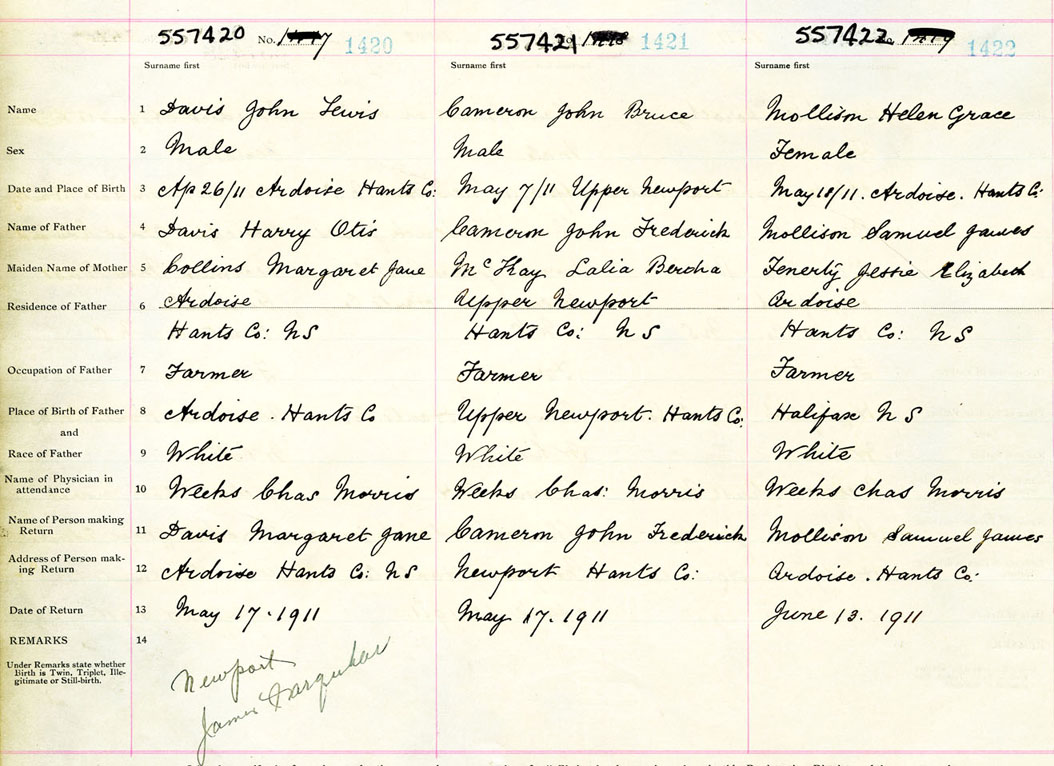 557420 No. 1420 557421 No. 1421 557422 1422
Surname first Surname first Surname first
Name 1 Davis John Lewis Cameron John Bruce Mollison Helen Grace
Sex 2 Male Male Female
Date and Place of Birth 3 Ap 26/11 Ardoise Hants Co: May 7/11 Upper Newport May 18/11. Ardoise. Hants Co:
Name of Father 4 Davis Harry Otis Cameron John Frederick Mollison Samuel James
Maiden Name of Mother 5 Collins Margaret Jane McKay Lalia Bertha Fenerty Jessie Elizabeth
Residence of Father 6 Ardoise Upper Newport Ardoise
Hants Co: NS Hants Co: NS Hants Co: NS
Occupation of Father 7 Farmer Farmer Farmer
Place of Birth of Father 8 Ardoise. Hants Co Upper Newport. Hants Co: Halifax NS
and
Race of Father 9 White White White
Name of Physician in
attendance 10 Weeks Chas Morris Weeks Chas: Morris Weeks Chas Morris
Name of Person making
Return 11 Davis Margaret Jane Cameron John Frederick Mollison Samuel James
Address of Person mak-
ing Return 12 Ardoise Hants Co: NS Newport Hants Co: Ardoise. Hants Co:
Date of Return 13 May 17. 1911 May 17. 1911 June 13. 1911
REMARKS 14
Under Remarks state whether
Birth is Twin, Triplet, Ille-
gitimate or Still-birth.
Newport
James Farquhar